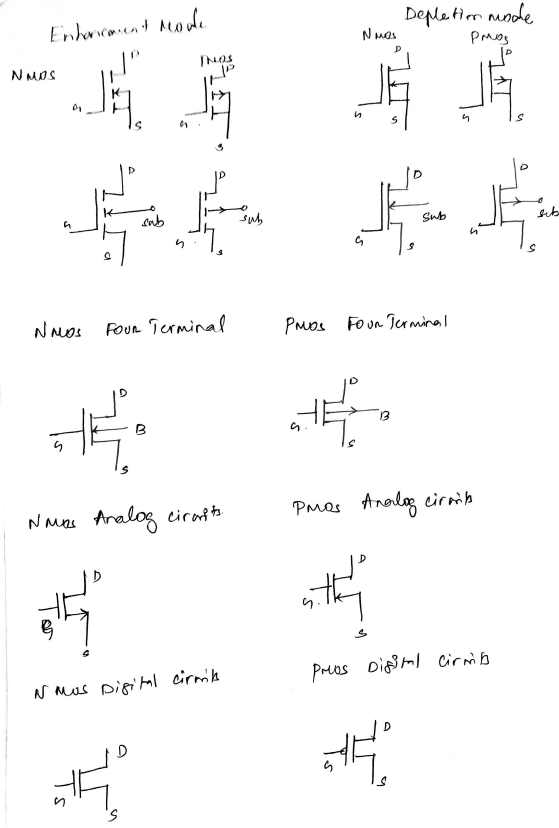 Enhancement Mode
Depletion mode
NMOS PMOS
NMOS PMOS
D D D D
G G G G
S S S S
D D D D
G sub G sub G sub G sub
S S S S
NMOS Four Terminal PMOS Four Terminal
D D
G B G. B
S S
NMOS Analog circuits PMOS Analog circuits
D D
G G.
S S
NMOS Digital circuits PMOS Digital circuits
D D
G G
S S